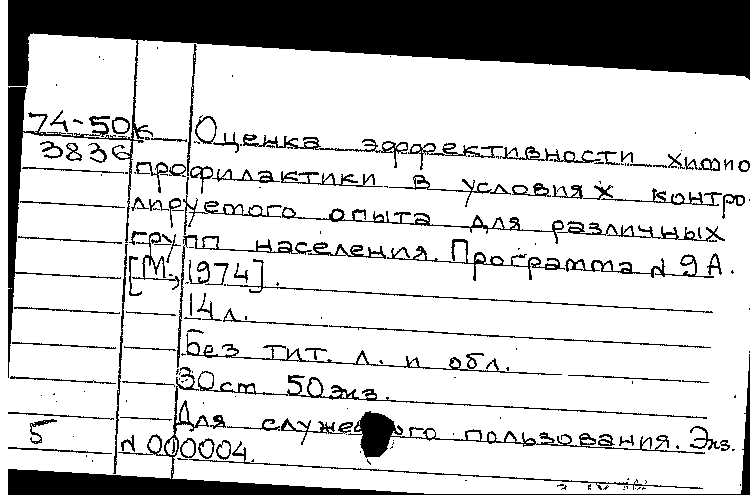 74-50к Оценка эффективности химио
3836 профилактики в условиях контро-
лируемого опыта для различных
групп населения. Программа № 9А.
[М., 1974].
14 л.
Без тит. л. и обл.
30 ст. 50 экз.
Для пользования. Экз.
5 № 000004.